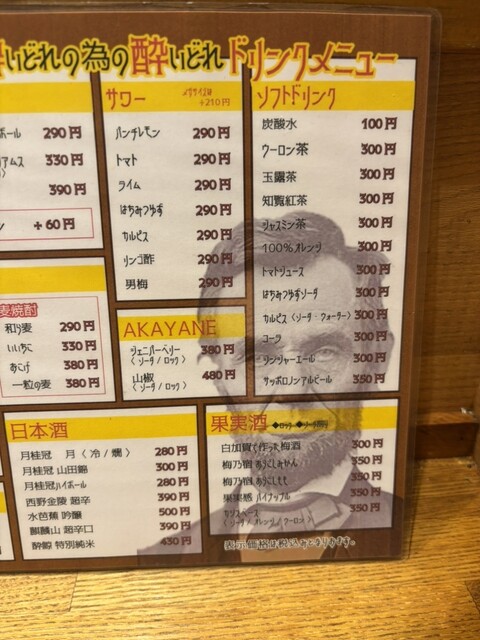 いどれの為の酔いどれドリンクメニュー
ボール 290円
330円
390円
+60円
麦焼酎
和ら麦 290円
いいちこ 330円
380円
一粒の麦 380円
サワー メガサイズは +210円
パンチレモン 290円
トマト 290円
ライム 290円
はちみつゆず 290円
カルピス 290円
リンゴ酢 290円
男梅 290円
AKAYANE
ジュニパーベリー 380円
〈ソーダ/ロック〉
山椒 480円
〈ソーダ/ロック〉
ソフトドリンク
炭酸水 100円
ウーロン茶 300円
玉露茶 300円
知覧紅茶 300円
ジャスミン茶 300円
100%オレンジ 300円
トマトジュース 300円
はちみつゆずソーダ 300円
カルピス〈ソーダ・ウォーター〉 300円
コーラ 300円
ジンジャーエール 300円
サッポロノンアルビール 350円
日本酒
月桂冠 月〈冷/燗〉 280円
月桂冠 山田錦 300円
月桂冠ハイボール 280円
西野金陵 超辛 390円
水芭蕉 吟醸 500円
麒麟山 超辛口 390円
酔鯨 特別純米 430円
果実酒 ◆ロック ◆ソーダ割り
白加賀で作った梅酒 300円
梅乃宿 あらごしみかん 350円
梅乃宿 あらごしもも 350円
果実感 パイナップル 350円
カシスベース 350円
〈ソーダ/オレンジ/ウーロン〉
表示価格は税込みとなります。